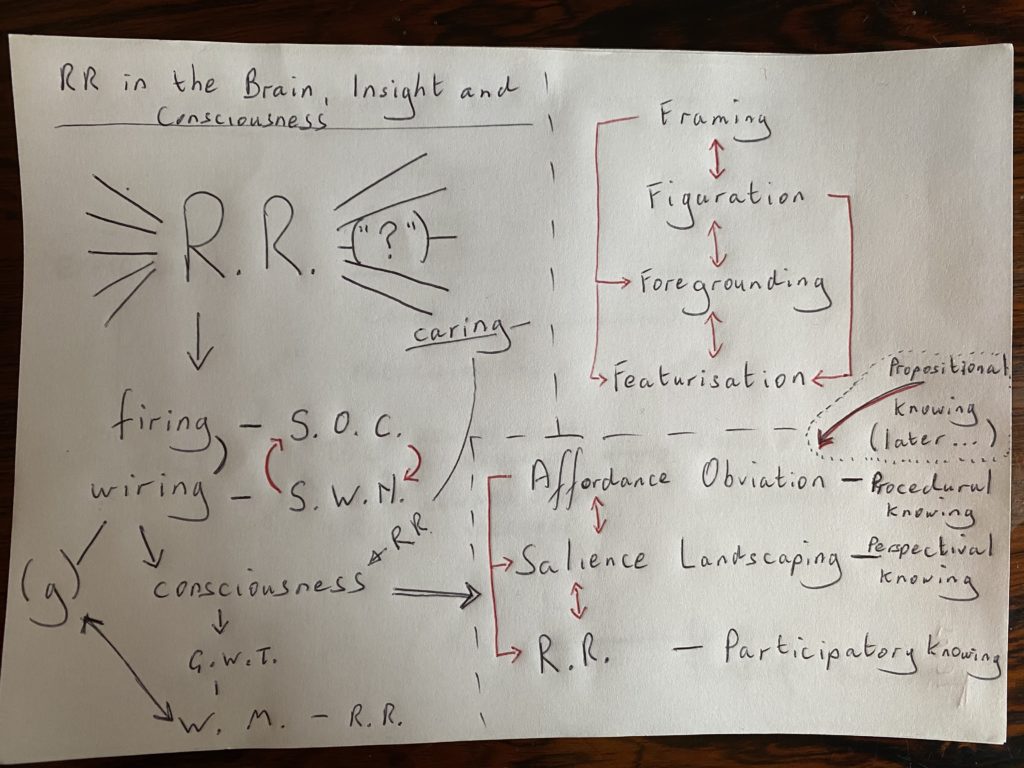 RR in the Brain, Insight and
Consciousness
R.R. ("?")
caring
firing, - S.O.C.
wiring - S.W.N.
R.R.
(g)
consciousness
G.W.T.
W.M. - R.R.
Framing
Figuration
Foregrounding
Featurisation
Propositional
knowing
(later...)
Affordance Obviation - Procedural
knowing
Salience Landscaping - Perspectival
knowing
R.R. - Participatory knowing